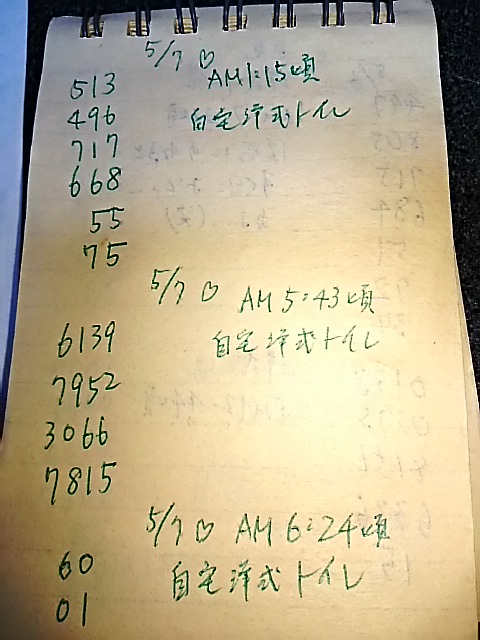 5/7♡
AM1:15頃
513
自宅洋式トイレ
496
717
668
55
75
5/7♡
AM5:43頃
自宅洋式トイレ
6139
7952
3066
7815
5/7♡ AM6:24頃
自宅洋式トイレ
60
01